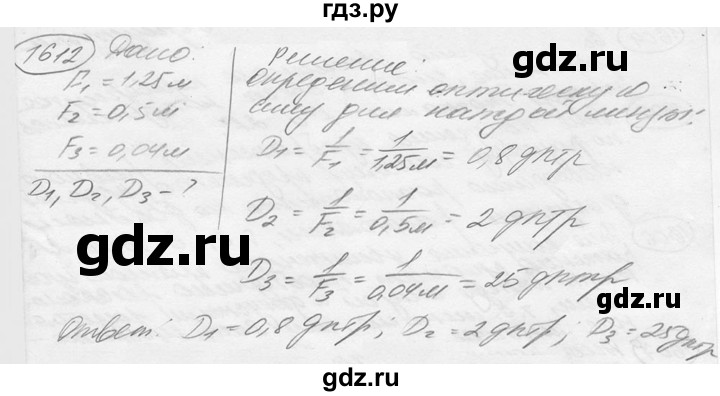 гдз.ру
1612 Дано:
F₁ = 1,25 м
F₂ = 0,5 м
F₃ = 0,04 м
D₁, D₂, D₃ - ?
Решение:
Определим оптическую
силу для каждой линзы:
D₁ = 1/F₁ = 1/1,25м = 0,8 дптр
D₂ = 1/F₂ = 1/0,5м = 2 дптр
D₃ = 1/F₃ = 1/0,04м = 25 дптр
Ответ: D₁ = 0,8 дптр; D₂ = 2 дптр; D₃ = 25 дптр
gdz.ru
gdz.ru
gdz.ru
gdz.ru